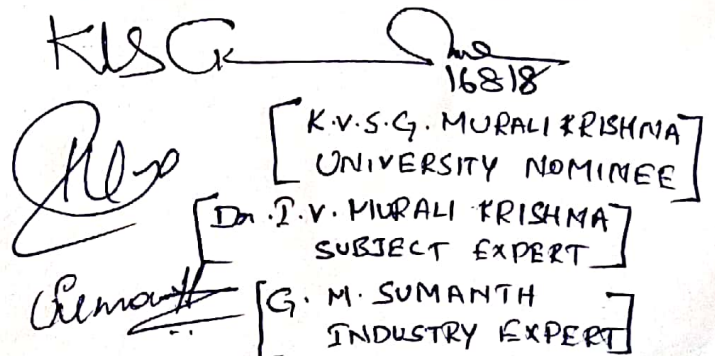 16818
[K.V.S.G. MURALI KRISHNA
UNIVERSITY NOMINEE]
[Dr. I.V. MURALI KRISHNA
SUBJECT EXPERT]
Sumanth [G. M. SUMANTH
INDUSTRY EXPERT]